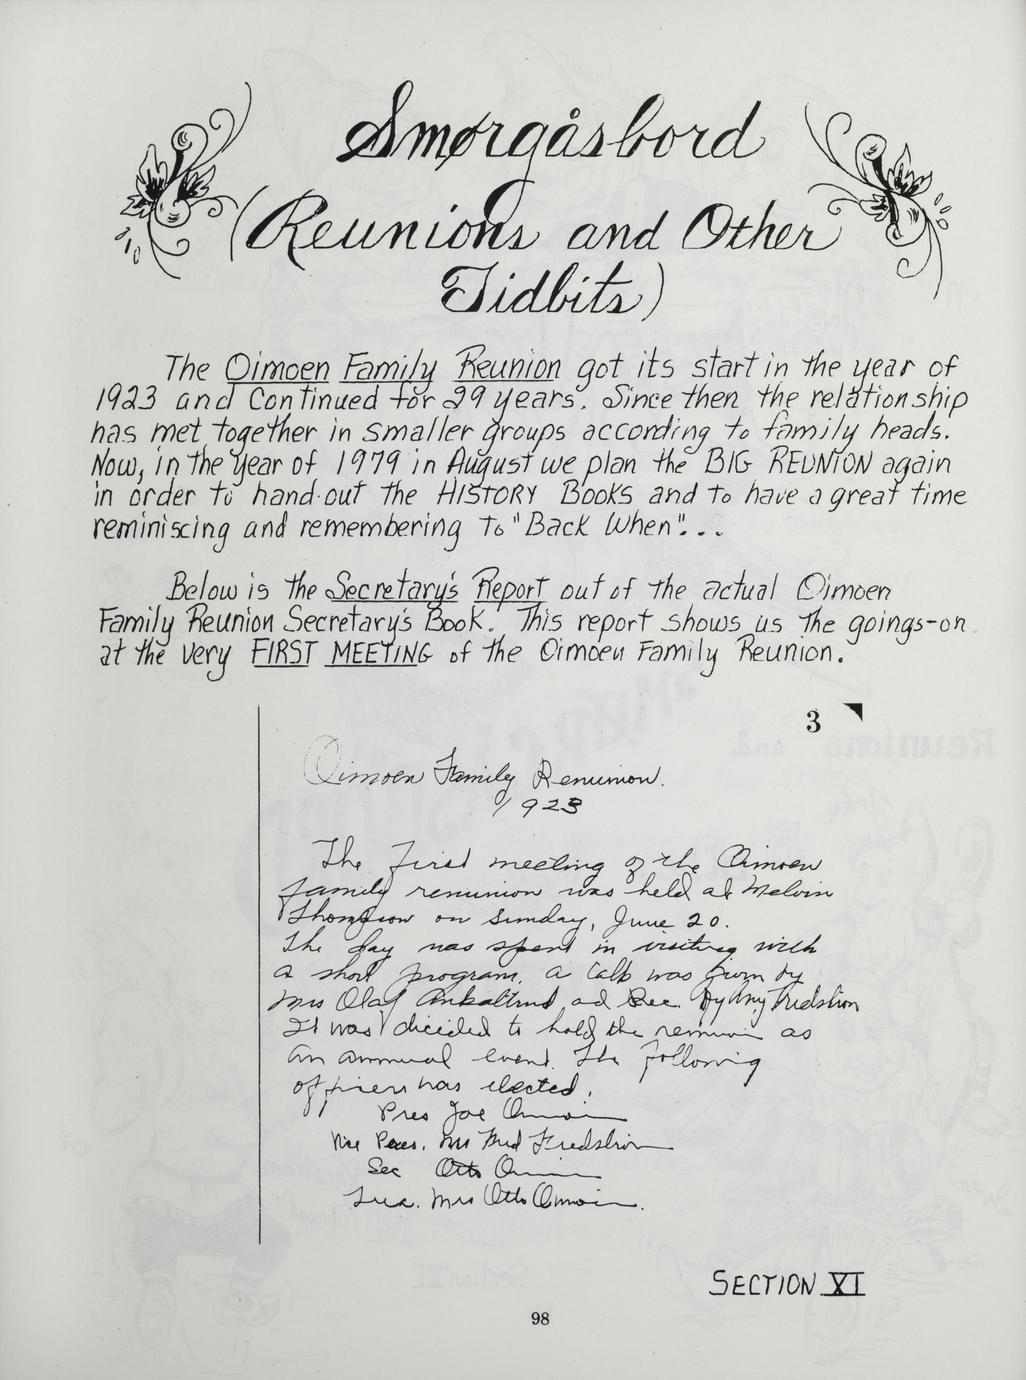 Smørgåsbord
(Reunions and Other
Tidbits)
The Oimoen Family Reunion got its start in the year of
1923 and continued for 29 years. Since then the relationship
has met together in smaller groups according to family heads.
Now, in the year of 1979 in August we plan the BIG REUNION again
in order to hand-out the HISTORY BOOKS and to have a great time
reminiscing and remembering to "Back When"...
Below is the Secretary's Report out of the actual Oimoen
Family Reunion Secretary's Book. This report shows us the goings-on
at the very FIRST MEETING of the Oimoen Family Reunion.
3
Oimoen Family Renunion.
1923
The first meeting of the Oimoen
family renunion was held at Melvin
Thompson on Sunday, June 20.
The day was spent in visiting with
a short program, a talk was given by
Mrs Olaf and Rec. By Amy Fredstrom
It was decided to hold the renunion as
an annual event. The following
officers was elected.
Pres Joe Oimoen
Vice Pres. Mrs Fred Fredstrom
Sec Otto Oimoen
Trea. Mrs Otto Oimoen.
SECTION XI
98